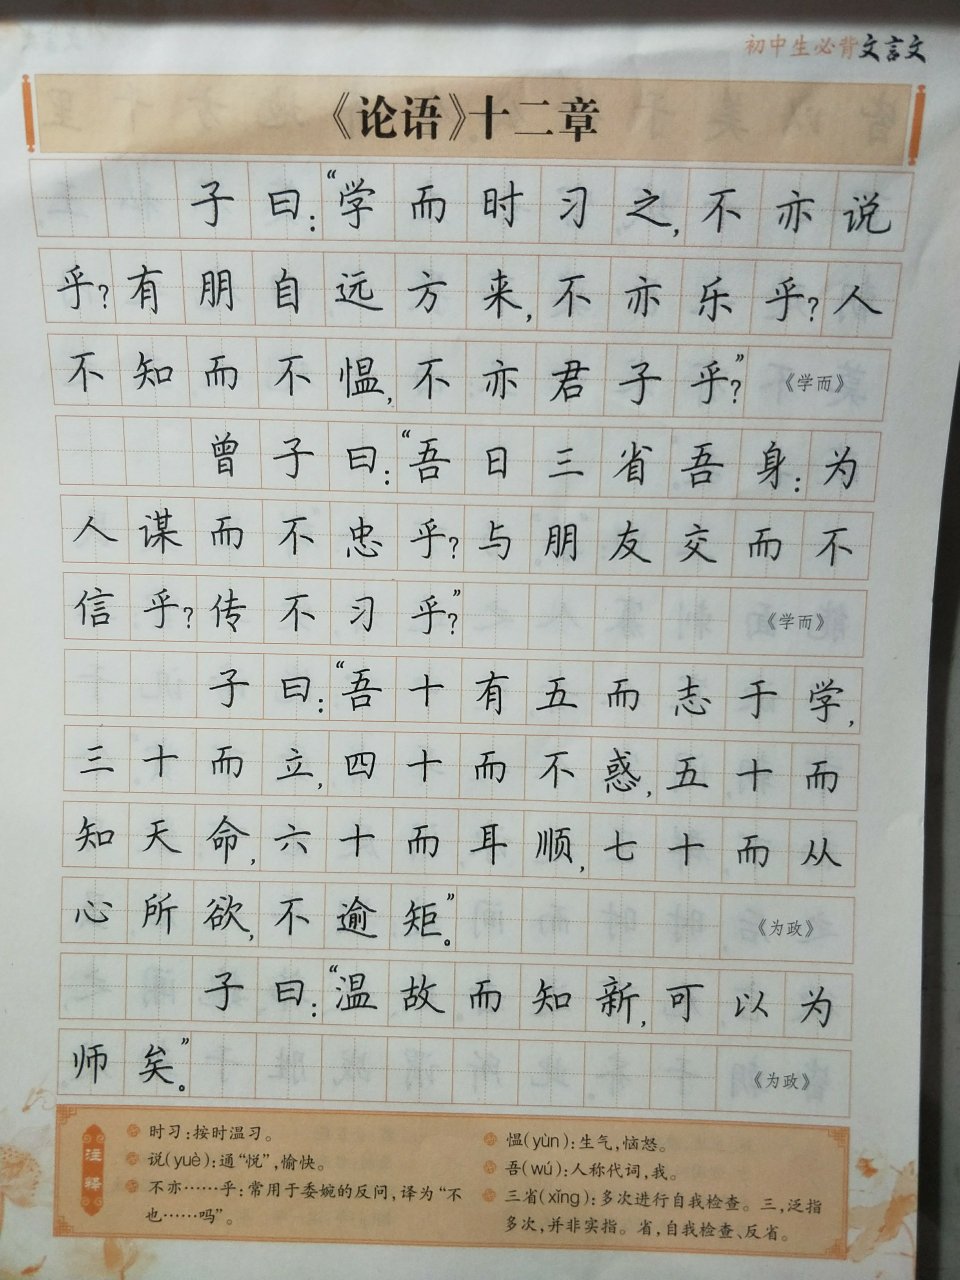 初中生必背文言文
《论语》十二章
子曰：“学而时习之，不亦说
乎？有朋自远方来，不亦乐乎？人
不知而不愠，不亦君子乎？” 《学而》
曾子曰：“吾日三省吾身：为
人谋而不忠乎？与朋友交而不
信乎？传不习乎？” 《学而》
子曰：“吾十有五而志于学，
三十而立，四十而不惑，五十而
知天命，六十而耳顺，七十而从
心所欲，不逾矩。” 《为政》
子曰：“温故而知新，可以为
师矣。” 《为政》
注释
时习：按时温习。
说(yuè)：通“悦”，愉快。
不亦……乎：常用于委婉的反问，译为“不
也……吗”。
愠(yùn)：生气，恼怒。
吾(wú)：人称代词，我。
三省(xǐng)：多次进行自我检查。三，泛指
多次，并非实指。省，自我检查、反省。